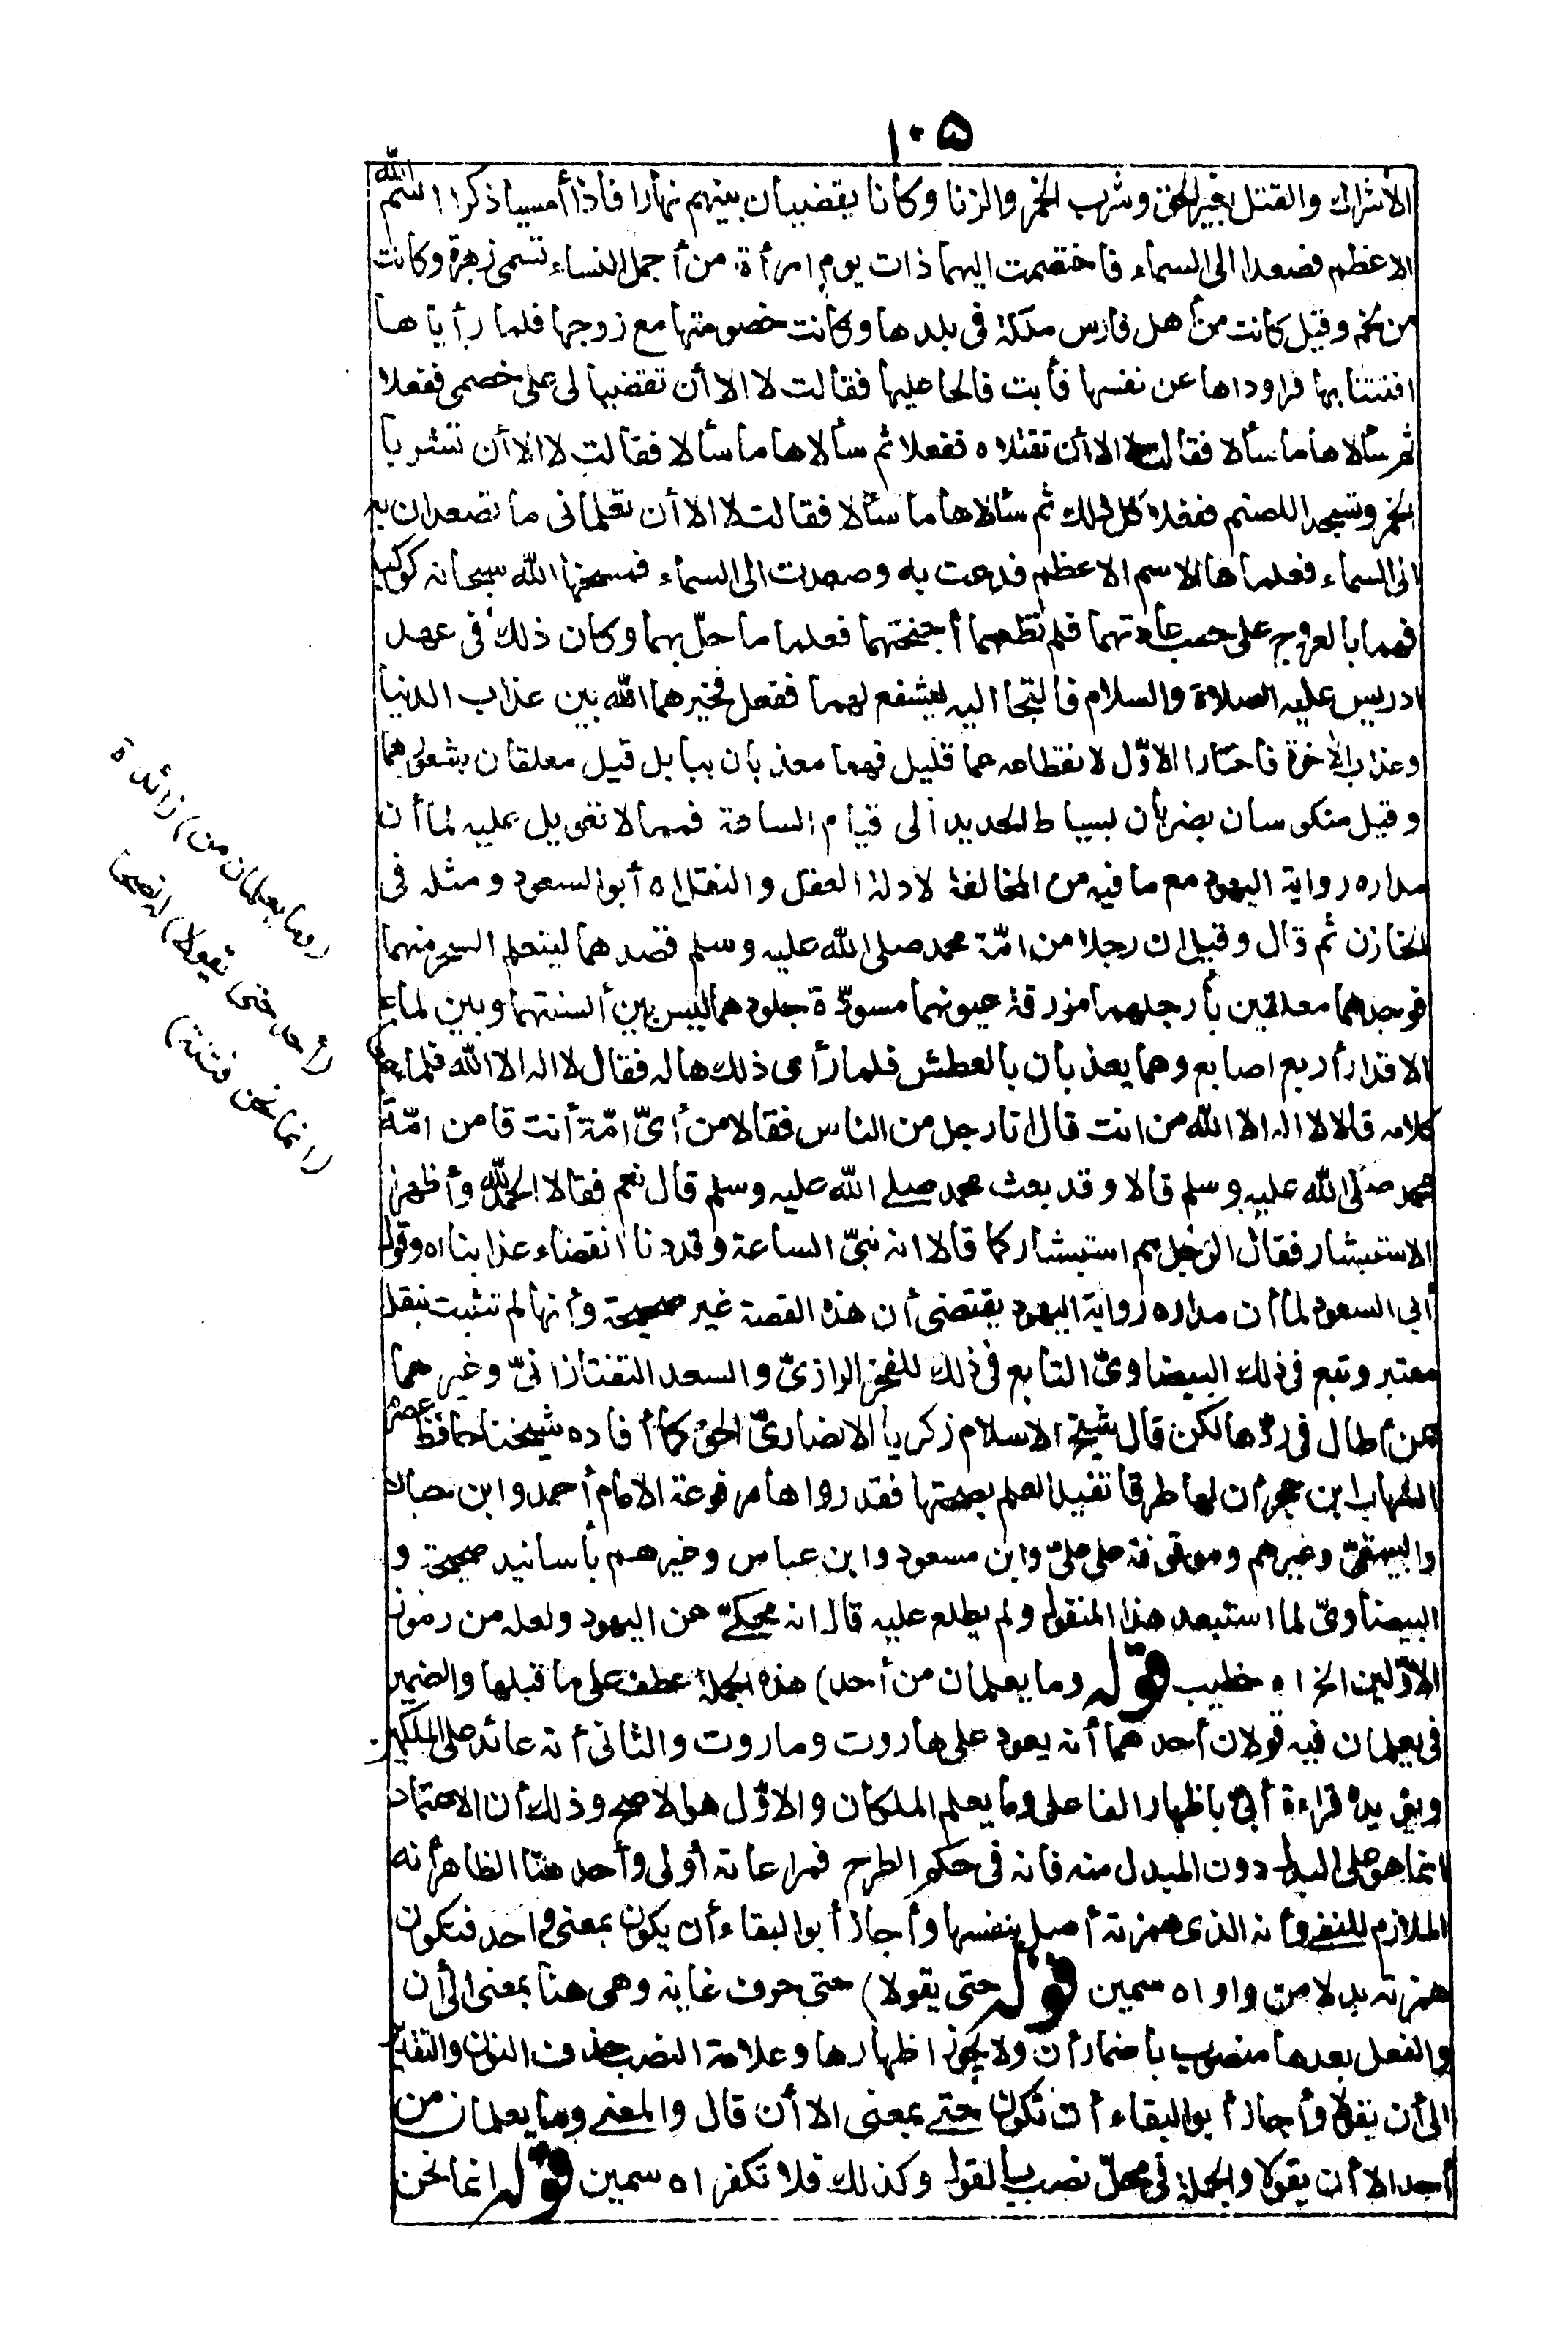 ١٠٥
الاشراك والقتل بغير الحق وشرب الخمر والزنا وكانا يقضيان بينهم نهارا فاذا أمسيا ذكرا اسم الله
الاعظم فصعدا الى السماء فاختصمت اليهما ذات يوم امرأة من أجمل النساء تسمى زهرة وكانت
من لخم وقيل كانت من أهل فارس ملكة فى بلدها وكانت خصومتها مع زوجها فلما رأياها
افتتنا بها فراوداها عن نفسها فأبت فالحا عليها فقالت لا الا أن تقضيا لى على خصمى ففعلا
ثم سألاها ما سألا فقالت لا الا أن تقتلاه ففعلا ثم سألاها ما سألا فقالت لا الا أن تشربا
الخمر وتسجدا للصنم ففعلا كل ذلك ثم سألاها ما سألا فقالت لا الا أن تعلمانى ما تصعدان به
الى السماء فعلماها الاسم الاعظم فدعت به وصعدت الى السماء فمسخها الله سبحانه كوكبا
فهما بالعروج على حسب عادتهما فلم تطعهما أجنحتهما فعلما ما حلّ بهما وكان ذلك فى عهد
ادريس عليه الصلاة والسلام فالتجا اليه ليشفع لهما ففعل فخيرهما الله بين عذاب الدنيا
وعذاب الآخرة فاختارا الاوّل لانقطاعه عما قليل فهما معذبان ببابل قيل معلقان بشعورهما
وقيل منكوسان يضربان بسياط الحديد الى قيام الساعة فمما لا تعويل عليه لما أن
مداره رواية اليهود مع ما فيه من المخالفة لادلة العقل والنقل اه أبو السعود ومثله فى
الخازن ثم قال وقيل ان رجلا من امّة محمد صلى الله عليه وسلم قصدهما ليتعلم السحر منهما
فوجدهما معلقين بأرجلهما مزرقة عيونهما مسودّة جلودهما ليس بين ألسنتهما وبين الماء
الا قدر أربع اصابع وهما يعذبان بالعطش فلما رأى ذلك هاله فقال لا اله الا الله فلما سمعا
كلامه قالا لا اله الا الله من انت قال انا رجل من الناس فقالا من أىّ امّة أنت قال من امّة
محمد صلى الله عليه وسلم قالا وقد بعث محمد صلى الله عليه وسلم قال نعم فقالا الحمد لله وأظهرا
الاستبشار فقال الرجل مم استبشاركما قالا انه نبىّ الساعة وقد دنا انقضاء عذابنا اه وقول
أبى السعود لما أن مداره رواية اليهود يقتضى أن هذه القصة غير صحيحة وأنها لم تثبت بنقل
معتبر وتبع فى ذلك البيضاوىّ التابع فى ذلك للفخر الرازىّ والسعد التفتازانىّ وغيرهما
ممن أطال فى ردّها لكن قال شيخ الاسلام زكريا الانصارىّ الحق كما أفاده شيخنا حافظ عصره
الشهاب ابن حجر أن لها طرقا تفيد العلم بصحتها فقد رواها مرفوعة الامام أحمد وابن حبان
والبيهقىّ وغيرهم وموقوفة على علىّ وابن مسعود وابن عباس وغيرهم بأسانيد صحيحة و
البيضاوىّ لما استبعد هذا المنقول ولم يطلع عليه قال انه محكىّ عن اليهود ولعله من رموز
الاوّلين الخ اه خطيب قوله وما يعلمان من أحد) هذه الجملة عطف على ما قبلها والضمير
فى يعلمان فيه قولان أحدهما أنه يعود على هاروت وماروت والثانى أنه عائد على الملكين
ويؤيده قراءة أبىّ باظهار الفاعل وما يعلم الملكان والاوّل هو الاصح وذلك أن الاعتماد
انما هو على البدل دون المبدل منه فانه فى حكم الطرح فمراعاته أولى وأحد هنا الظاهر أنه
الملازم للنفى وأنه الذى همزته أصل بنفسها وأجاز أبو البقاء أن يكون بمعنى واحد فتكون
همزته بدلا من واو اه سمين قوله حتى يقولا) حتى حرف غاية وهى هنا بمعنى الى أن
والفعل بعدها منصوب باضمار أن ولا يجوز اظهارها وعلامة النصب حذف النون والتقدير
الى أن يقولا وأجاز أبو البقاء أن تكون حتى بمعنى الا أن قال والمعنى وما يعلمان من
أحد الا أن يقولا والجملة فى محلّ نصب بالقول وكذلك فلا تكفر اه سمين قوله انما نحن
(وما يعلمان من) زائدة
(أحد حتى يقولا) له نصحا
(انما نحن فتنة)